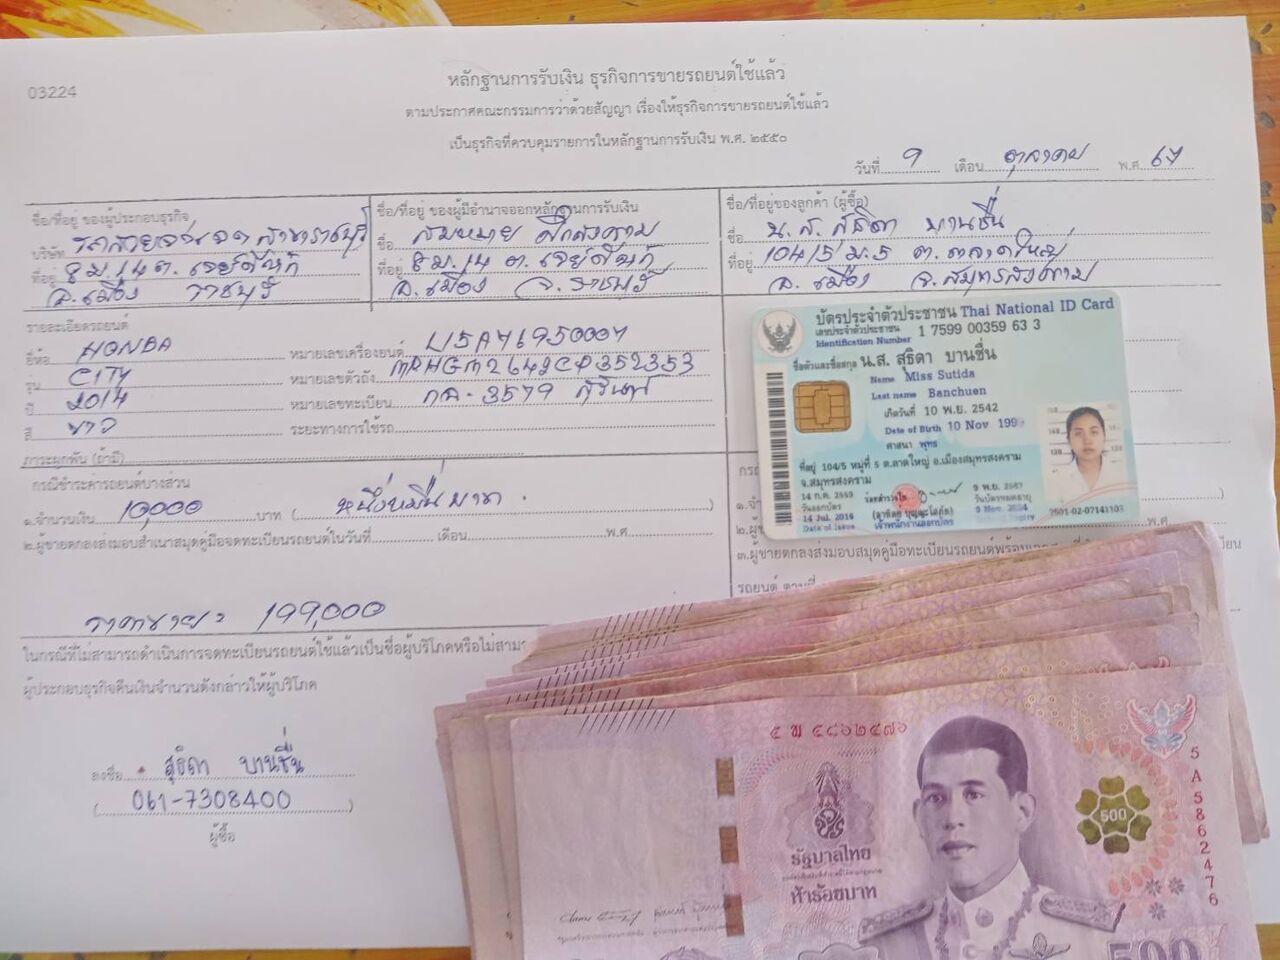 03224
หลักฐานการรับเงิน ธุรกิจการขายรถยนต์ใช้แล้ว
ตามประกาศคณะกรรมการว่าด้วยสัญญา เรื่องให้ธุรกิจการขายรถยนต์ใช้แล้ว
เป็นธุรกิจที่ควบคุมรายการในหลักฐานการรับเงิน พ.ศ. ๒๕๕๐
วันที่ 9 เดือน ตุลาคม พ.ศ. 67
ชื่อ/ที่อยู่ ของผู้ประกอบธุรกิจ
บริษัท
ที่อยู่ 8 ม.14 ต. เจดีย์หัก
อ.เมือง ราชบุรี
ชื่อ/ที่อยู่ ของผู้มีอำนาจออกหลักฐานการรับเงิน
ชื่อ สมหมาย
ที่อยู่ 8 ม.14 ต. เจดีย์หัก
อ.เมือง จ.ราชบุรี
ชื่อ/ที่อยู่ของลูกค้า (ผู้ซื้อ)
ชื่อ น.ส. สุธิดา บานชื่น
ที่อยู่ 104/5 ม.5 ต.ลาดใหญ่
อ. เมือง จ.สมุทรสงคราม
รายละเอียดรถยนต์
ยี่ห้อ HONDA
รุ่น CITY
ปี 2014
สี ขาว
หมายเลขเครื่องยนต์
หมายเลขตัวถัง
หมายเลขทะเบียน กค-3579 สุรินทร์
ระยะทางการใช้รถ
ภาระผูกพัน (ถ้ามี)
กรณีชำระค่ารถยนต์บางส่วน
๑.จำนวนเงิน 10,000 บาท ( หนึ่งหมื่นบาท . )
๒.ผู้ขายตกลงส่งมอบสำเนาสมุดคู่มือจดทะเบียนรถยนต์ในวันที่ เดือน พ.ศ
ราคาขาย = 199,000
บัตรประจำตัวประชาชน Thai National ID Card
เลขประจำตัวประชาชน 1 7599 00359 63 3
Identification Number
ชื่อตัวและชื่อสกุล น.ส. สุธิดา บานชื่น
Name Miss Sutida
Last name Banchuen
เกิดวันที่ 10 พ.ย. 2542
Date of Birth 10 Nov 199
ศาสนา พุทธ
ที่อยู่ 104/5 หมู่ที่ 5 ต.ลาดใหญ่ อ.เมืองสมุทรสงคราม
จ.สมุทรสงคราม
14 ก.ค. 2559
วันออกบัตร
14 Jul. 2016
Date of Issue
เจ้าพนักงานออกบัตร
9 พ.ย. 2567
วันบัตรหมดอายุ
9 Nov. 2024
7501-02-07141103
พ.ศ
๓.ผู้ขายตกลงส่งมอบสมุดคู่มือทะเบียนรถยนต์
รถยนต์
ในกรณีที่ไม่สามารถดำเนินการจดทะเบียนรถยนต์ใช้แล้วเป็นชื่อผู้บริโภคหรือไม่สามา
ผู้ประกอบธุรกิจคืนเงินจำนวนดังกล่าวให้ผู้บริโภค
ลงชื่อ สุธิดา บานชื่น
( 061-7308400 )
ผู้ซื้อ
๕ พ ๕๘๖๒๔๗๖
5 A 5862476
500
รัฐบาลไทย
ห้าร้อยบาท
500